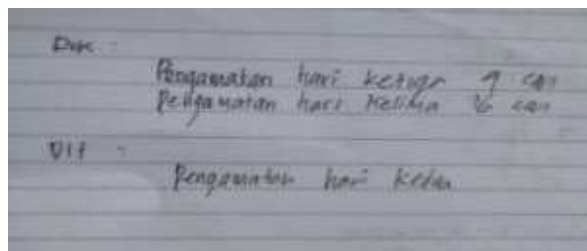 Dik :
Pengamatan hari ketiga 9 cm
Pengamatan hari kelima cm
Dit :
Pengamatan hari